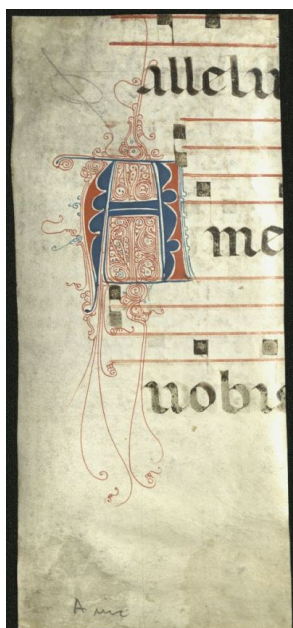 allelu
A me
nobis